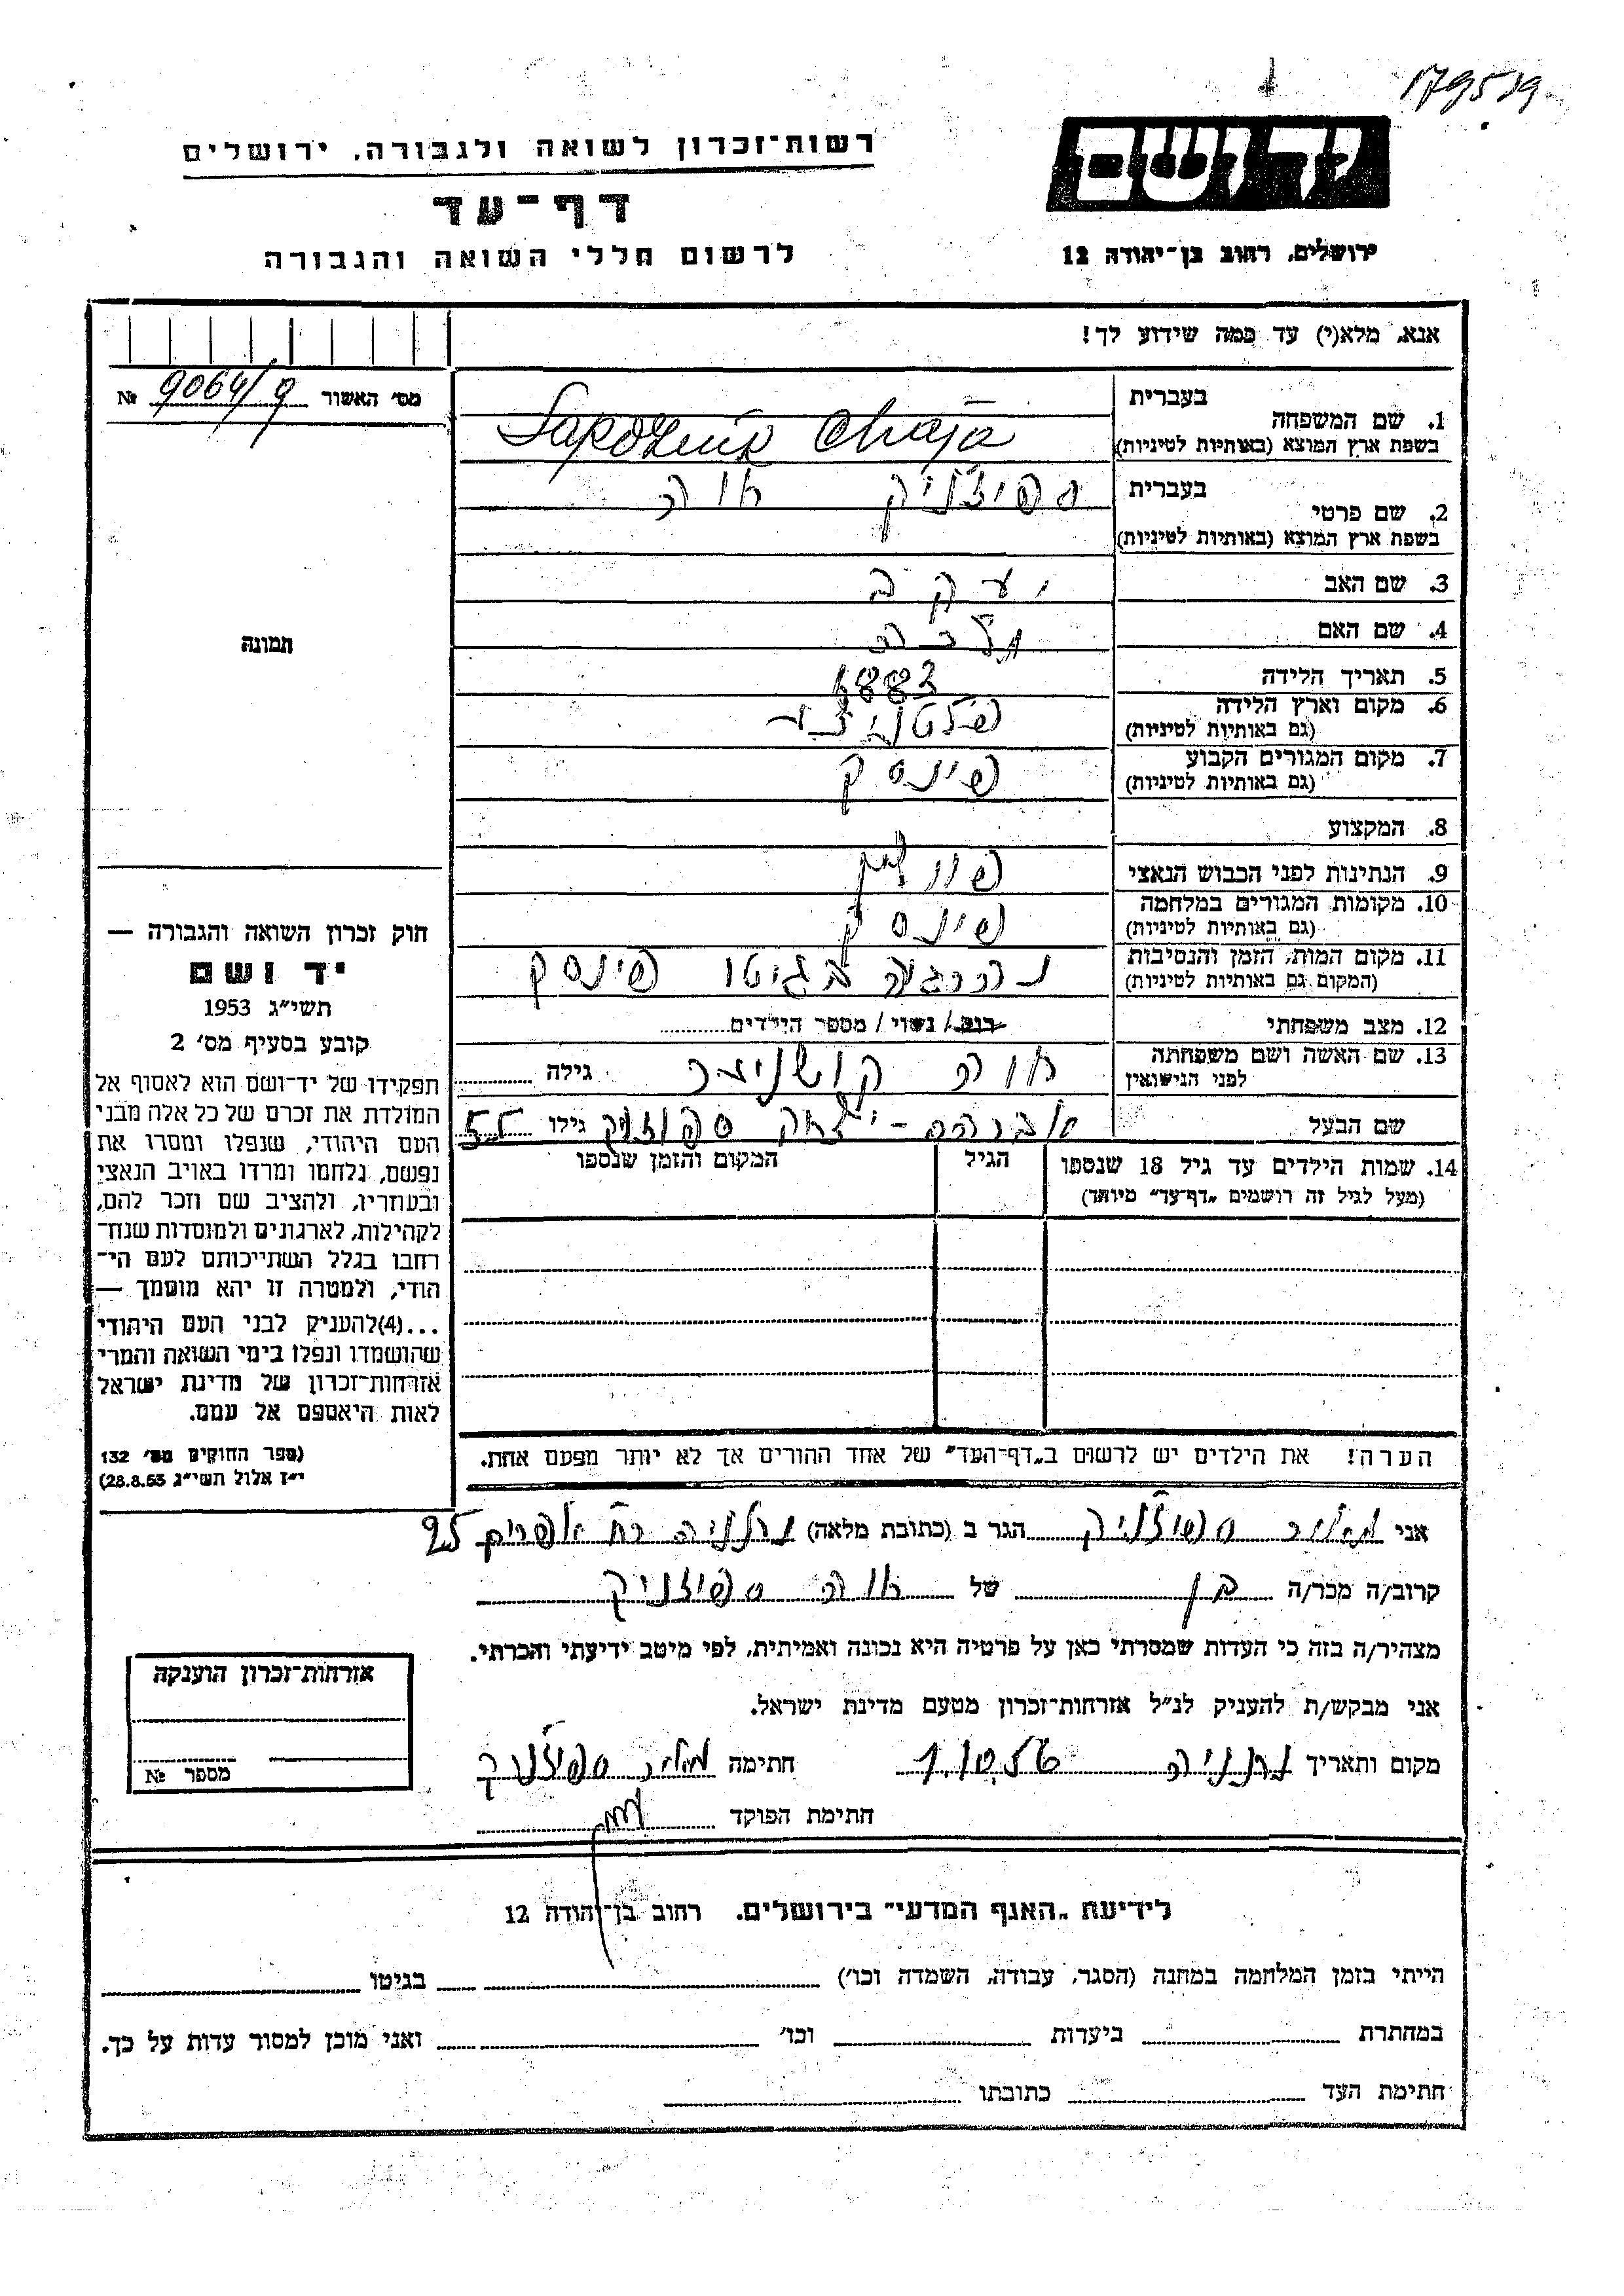 179519
רשות־זכרון לשואה ולגבורה, ירושלים
דף־עד
לרשום חללי השואה והגבורה
יד ושם
ירושלים, רחוב בן־יהודה 12
אנא, מלא(י) עד כמה שידוע לך!
מס׳ האשור 9064/9 №
1. שם המשפחה
בעברית
בשפת ארץ המוצא (באותיות לטיניות) Sapożnik Chaja
2. שם פרטי
בעברית ספוזניק חיה
בשפת ארץ המוצא (באותיות לטיניות)
3. שם האב יעקב
4. שם האם מלכה
5. תאריך הלידה 1883
6. מקום וארץ הלידה
(גם באותיות לטיניות)
7. מקום המגורים הקבוע פינסק
(גם באותיות לטיניות)
8. המקצוע
9. הנתינות לפני הכבוש הנאצי
10. מקומות המגורים במלחמה פינסק
(גם באותיות לטיניות)
11. מקום המות, הזמן והנסיבות נהרגה בגיטו פינסק
(המקום גם באותיות לטיניות)
12. מצב משפחתי רוק / נשוי / מספר הילדים
13. שם האשה ושם משפחתה חיה גילה
לפני הנישואין
שם הבעל אברהם-יצחק ספוזניק גילו 55
14. שמות הילדים עד גיל 18 שנספו
(מעל לגיל זה רושמים „דף־עד״ מיוחד)
הגיל
המקום והזמן שנספו
הערה! את הילדים יש לרשום ב„דף־העד״ של אחד ההורים אך לא יותר מפעם אחת.
תמונה
חוק זכרון השואה והגבורה —
יד ושם
תשי״ג 1953
קובע בסעיף מס׳ 2
תפקידו של יד־ושם הוא לאסוף אל
המולדת את זכרם של כל אלה מבני
העם היהודי, שנפלו ומסרו את
נפשם, נלחמו ומרדו באויב הנאצי
ובעוזריו, ולהציב שם וזכר להם,
לקהילות, לארגונים ולמוסדות שנח־
רחבו בגלל השתייכותם לעם הי־
הודי, ולמטרה זו יהא מוסמך —
...(4)להעניק לבני העם היהודי
שהושמדו ונפלו בימי השואה והמרי
אזרחות־זכרון של מדינת ישראל
לאות היאספם אל עמם.
(ספר החוקים מס׳ 132
י״ז אלול תשי״ג 28.8.53)
אני מאיר ספוזניק הגר ב (כתובת מלאה) נתניה רח אפרים 25
קרוב/ה מכר/ה בן של חיה ספוזניק
מצהיר/ה בזה כי העדות שמסרתי כאן על פרטיה היא נכונה ואמיתית, לפי מיטב ידיעתי והכרתי.
אני מבקש/ת להעניק לנ״ל אזרחות־זכרון מטעם מדינת ישראל.
מקום ותאריך נתניה 1.10.56 חתימה מאיר ספוזניק
חתימת הפוקד
אזרחות־זכרון הוענקה
מספר №
לידיעת „האגף המדעי״ בירושלים. רחוב בן־יהודה 12
הייתי בזמן המלחמה במחנה (הסגר, עבודה, השמדה וכו׳) בגיטו
במחתרת ביערות וכו׳ ואני מוכן למסור עדות על כך.
חתימת העד כתובתו